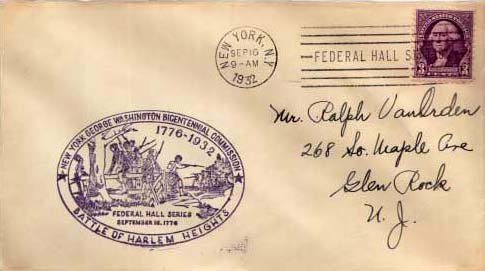 NEW YORK, N.Y.
SEP 16
9-AM
1932
FEDERAL HALL S
3 3
Mr. Ralph VanOrden
268 So. Maple Ave
Glen Rock
N. J.
NEW YORK GEORGE WASHINGTON BICENTENNIAL COMMISSION
1776-1932
FEDERAL HALL SERIES
SEPTEMBER 16, 1776
BATTLE OF HARLEM HEIGHTS